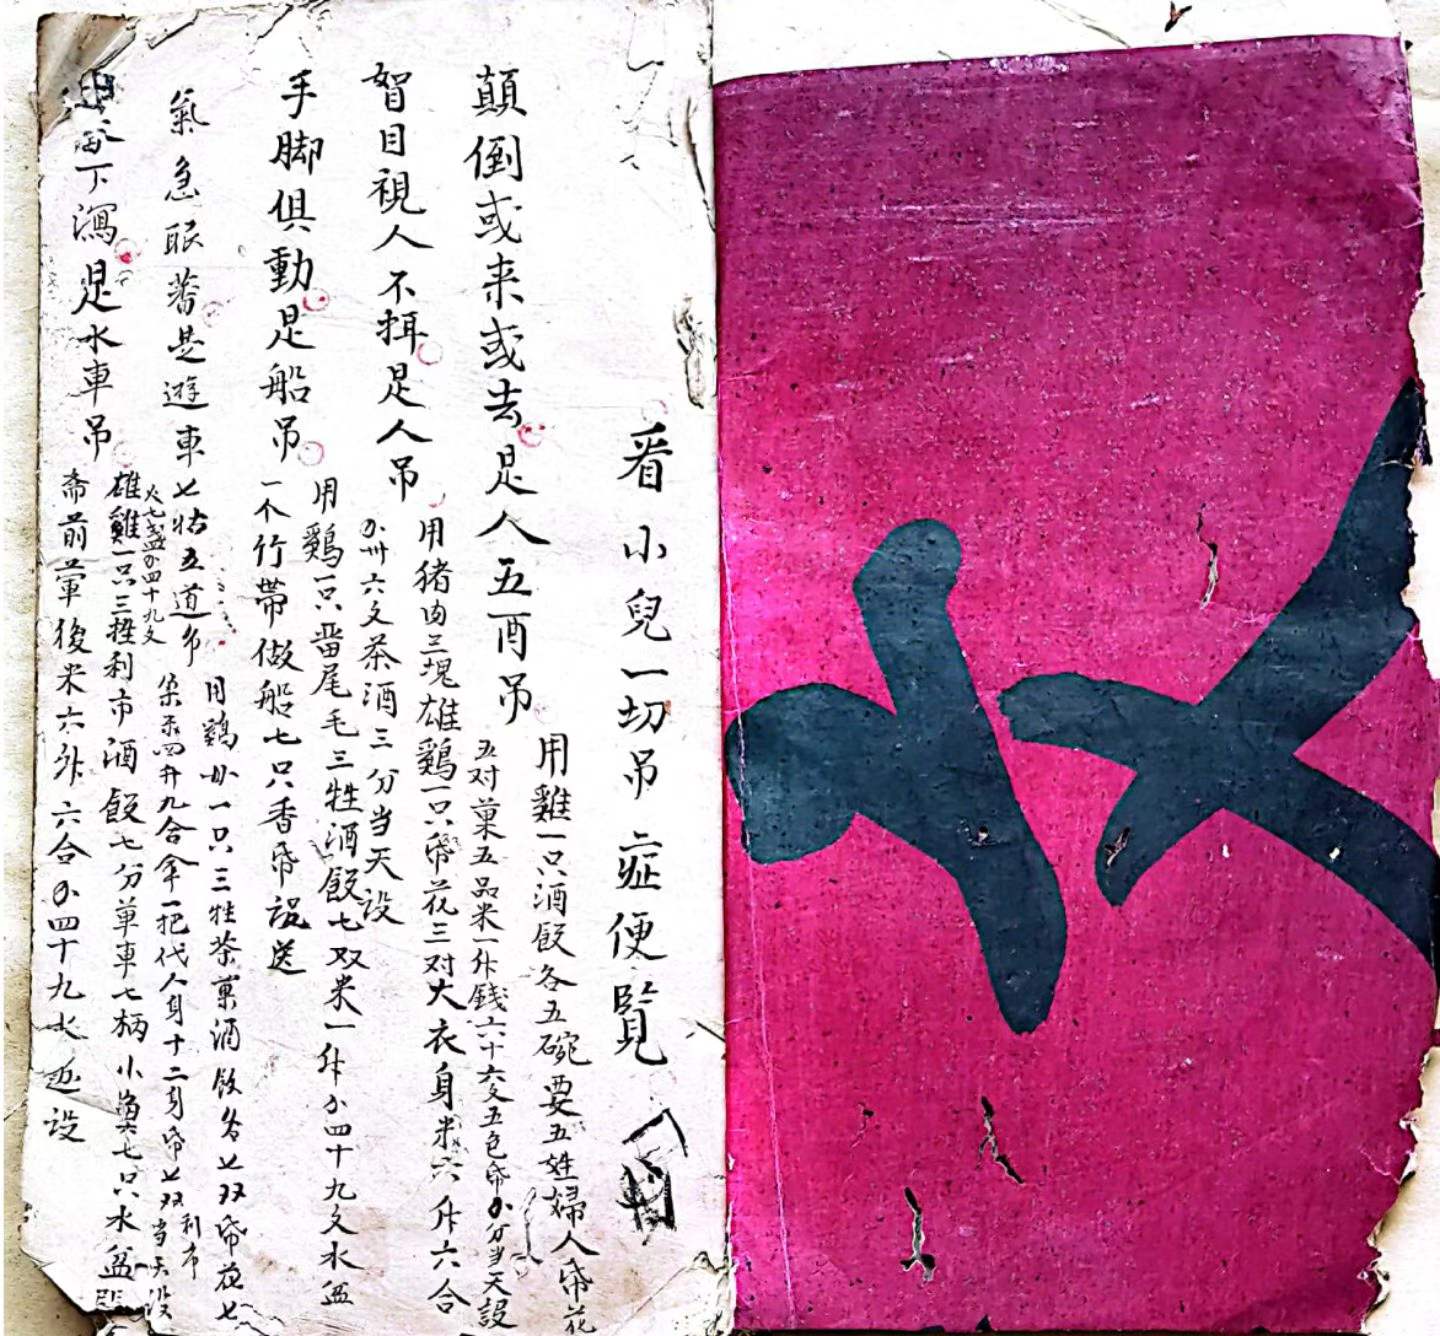 看小兒一切吊症便覽
顛倒或来或去是人五酉吊
用雞一只酒飯各五碗要五姓婦人帋花
五对菓五品米一升錢六十文五色帋分当天設
目視人不揖是人吊
用猪肉三塊雄鷄一只帋花三对大衣身米六升六合
六文茶酒三分当天设
手脚俱動是船吊
用鷄一只尾毛三牲酒飯七双米一升四十九文水盆
一个竹帶做船七只香帋設送
氣急眼是遊車七姑五道吊
用鷄一只三牲茶菓酒飯各七双帋花七
四升九合伞一把代人身十二身帋七双当天設
利市
下瀉是水車吊
火七盞四十九文
雄雞一只三牲利市酒飯七分草車七柄小魚七只水盆
斋前葷後米六升六合四十九文设